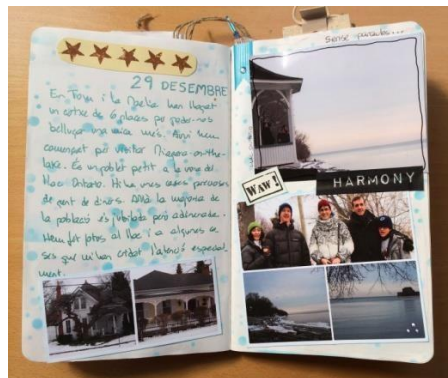 29 DESEMBRE
En Tom i la Noelia han llogat
un cotxe de 6 places per poder-nos
bellugar una mica més. Avui hem
començat per visitar Niagara-on-the-
lake. És un poblet petit a la vora del
llac Ontario. Hi ha unes cases precioses
de gent de diners. Allà la majoria de
la població és jubilada però adinerada.
Hem fet fotos al llac i a algunes ca-
ses que m'han cridat l'atenció especial
ment.
Sense paraules...
WAW!
HARMONY